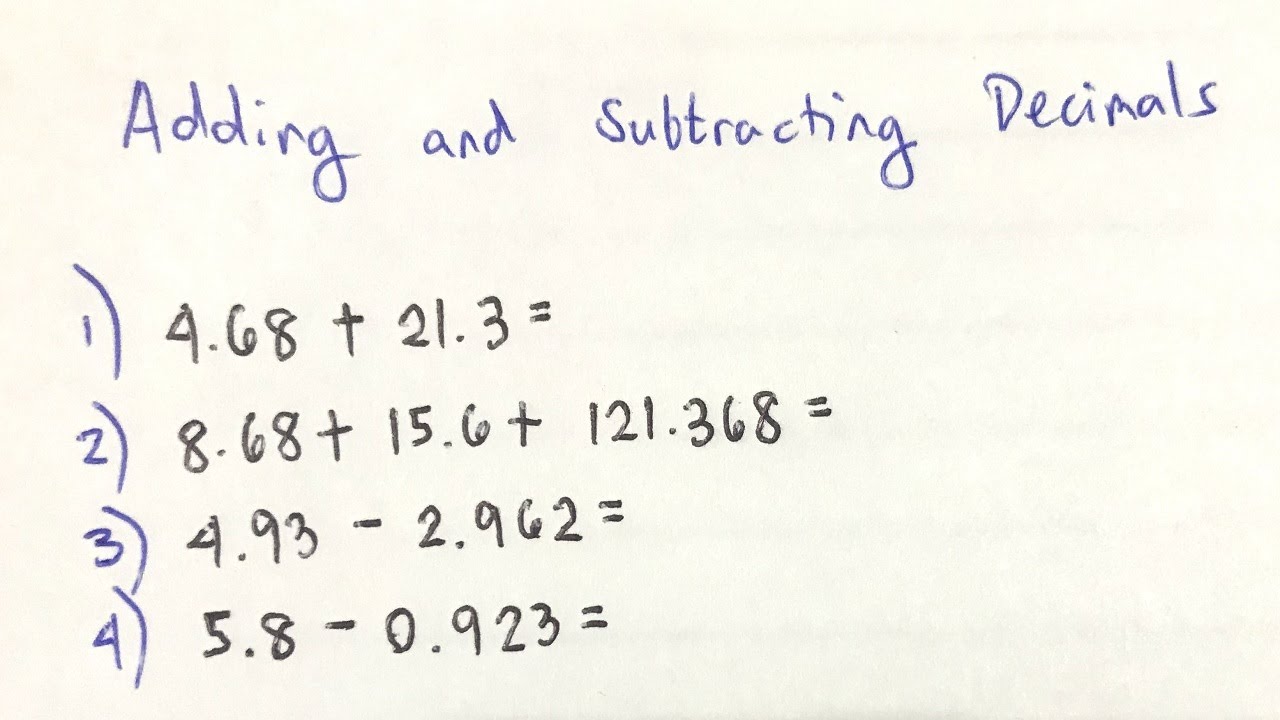 Adding and Subtracting Decimals
1) 4.68 + 21.3 =
2) 8.68 + 15.6 + 121.368 =
3) 4.93 - 2.962 =
4) 5.8 - 0.923 =